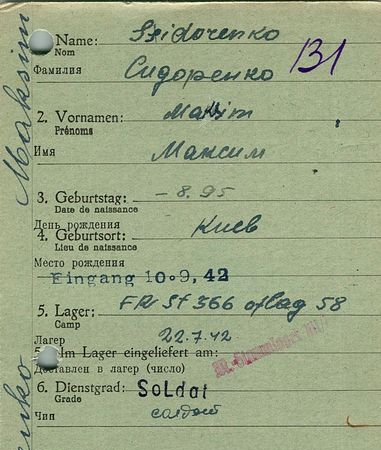 Maksim
Name: Ssidorenko
Nom
Фамилия Сидоренко
131
2. Vornamen: Maksim
Prénoms
Имя Максим
3. Geburtstag: – 8. 95
Date de naissance
День рождения
4. Geburtsort: Киев
Lieu de naissance
Место рождения
Eingang 10.9.42
5. Lager: FR St 366 oflag 58
Camp
Лагерь 22.7.42
Im Lager eingeliefert am:
Доставлен в лагерь (число)
6. Dienstgrad: Soldat
Grade
Чин солдат